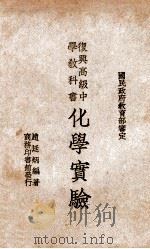 國民政府敎育部審定
復興高級中
學敎科書
化學實驗
趙廷炳編著
商務印書館發行